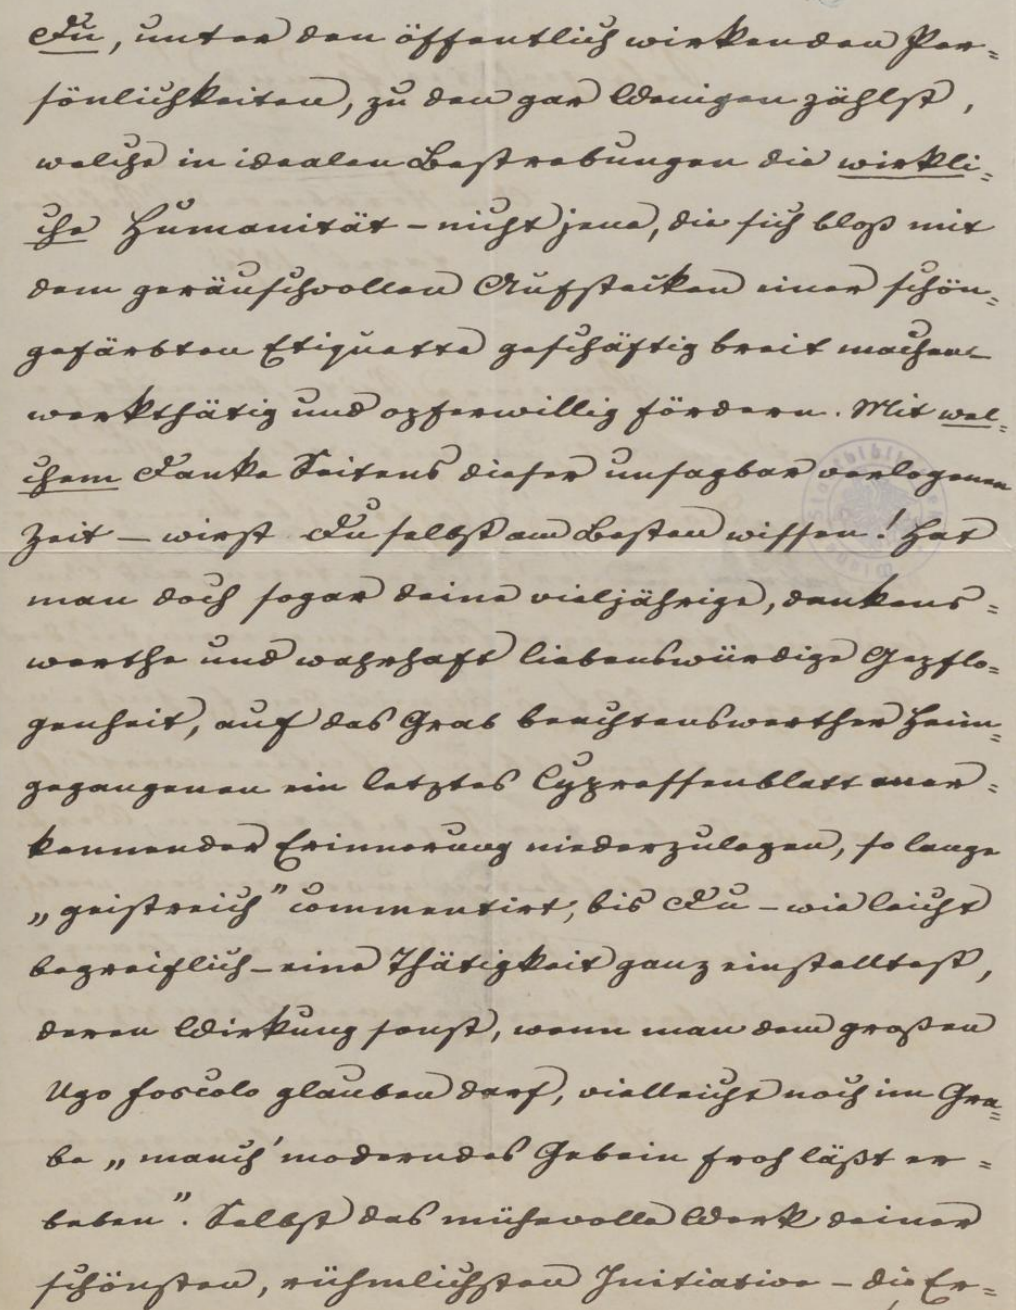 Du, unter den öffentlich wirkenden Per=
sönlichkeiten, zu den gar Wenigen zählst,
welche in idealen Bestrebungen die wirkli=
che Humanität – nicht jene, die sich bloß mit
dem geräuschvollen Aufstecken einer schön=
gefärbten Etiquette geschäftig breit machen –
werkthätig und opferwillig fördern. Mit wel=
chem Danke Seitens dieser unsagbar verlogenen
Zeit – wirst Du selbst am Besten wissen! Hat
man doch sogar deine vieljährige, dankens=
werthe und wahrhaft liebenswürdige Gepflo=
genheit, auf das Grab beachtenswerther Heim=
gegangenen ein letztes Cypressenblatt aner=
kennender Erinnerung niederzulegen, so lange
„geistreich" commentirt, bis Du – wie leicht
begreiflich – eine Thätigkeit ganz einstelltest,
deren Wirkung sonst, wenn man dem großen
Ugo Foscolo glauben darf, vielleicht noch im Gra=
be „manch' moderndes Gebein froh läßt er=
beben". Selbst das mühevolle Werk deiner
schönsten, rühmlichsten Initiative – die Er=